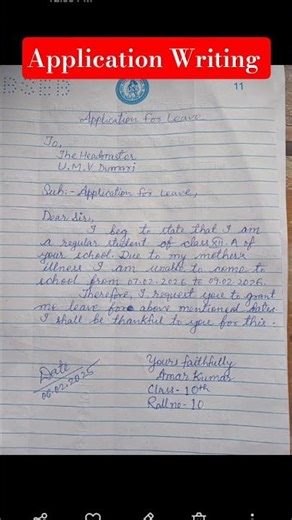 Application Writing
11
Application for Leave
To,
The Headmaster
U.M.V Dumari
Sub:- Application for Leave,
Dear Sir,
I beg to state that I am
a regular student of class A of
your school. Due to my mother's
illness I am unable to come to
school from 07.02.2026 to 09.02.2026.
Therefore, I request you to grant
me leave for above mentioned dates
I shall be thankful to you for this.
Yours faithfully
Date
Amar Kumar
Class- 10th
Roll no- 10